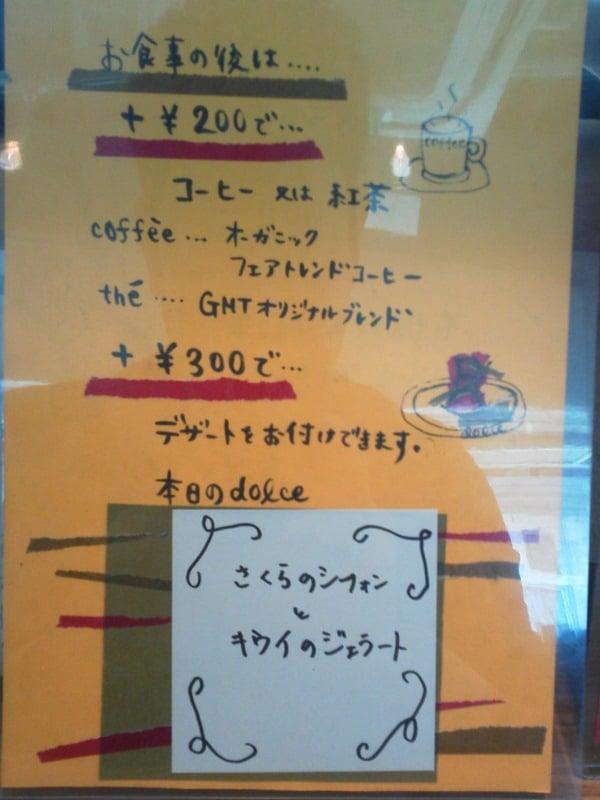 お食事の後は....
+ ¥200で...
coffee
コーヒー 又は 紅茶
coffèe ... オーガニック
フェアトレンドコーヒー
thé .... GMTオリジナルブレンド
+ ¥300で...
dolce
デザートをお付けできます。
本日のdolce
さくらのシフォン
と
キウイのジェラート